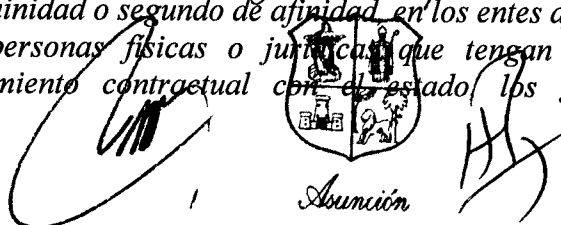 inidad o segundo de afinidad, en los entes
personas físicas o jurídicas que tengan
miento contractual con el estado, los
Asunción